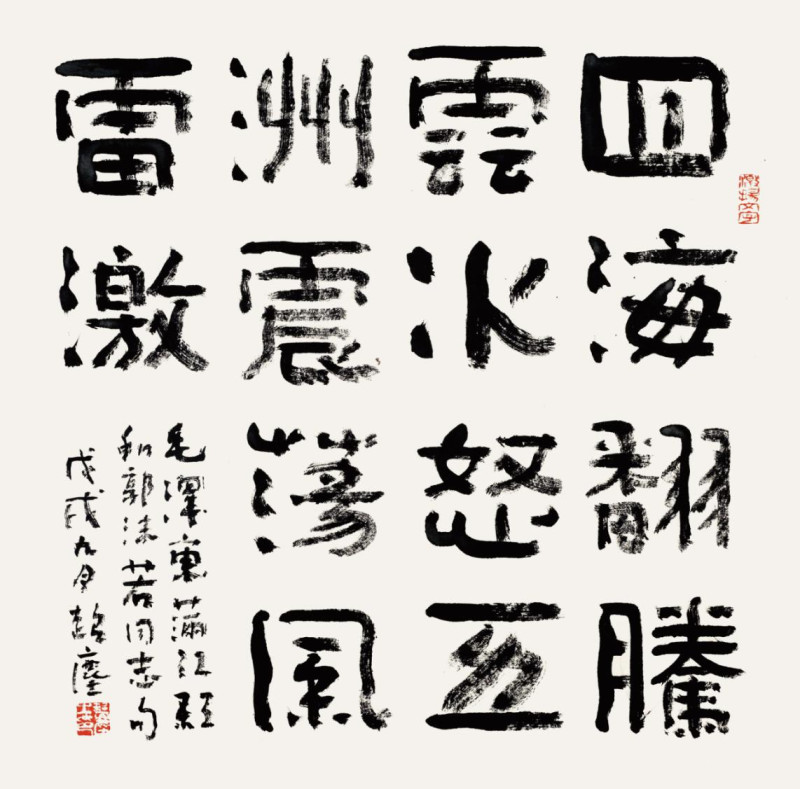 四海翻騰
雲水怒五
洲震蕩風
雷激
毛澤東滿江紅
和郭沫若同志句
戊戌九月塵